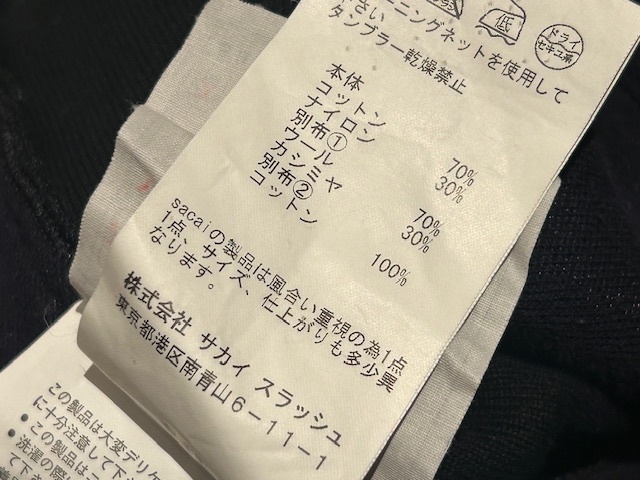 低
ドライ
セキユ系
ニングネットを使用して
さい
タンブラー乾燥禁止
本体
コットン 70%
ナイロン 30%
別布①
ウール 70%
カシミヤ 30%
別布②
コットン 100%
sacaiの製品は風合い重視の為1点
1点、サイズ、仕上がりも多少異
なります。
株式会社 サカイ スラッシュ
東京都港区南青山6-11-1
この製品は大変デリケ
に十分注意して下
・この製品は
・洗濯の際
て下さ